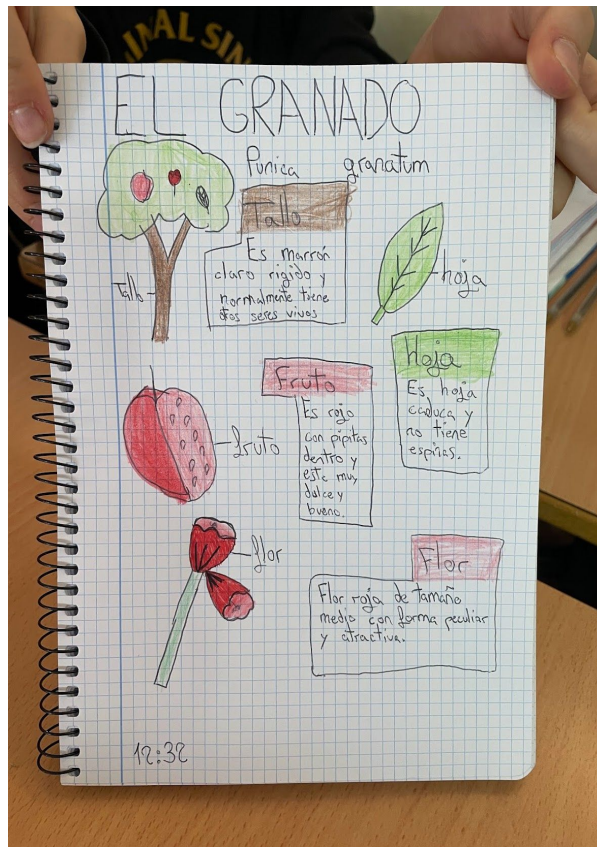 INAL SIN
EL GRANADO
Punica granatum
Tallo
Es marrón
claro rigido y
normalmente tiene
seres vivos
Tallo
hoja
Hoja
Es hoja
caduca y
no tiene
espinas.
Fruto
Es rojo
con pipitas
dentro y
este muy
dulce y
bueno.
fruto
flor
Flor
Flor roja de tamaño
medio con forma peculiar
y atractiva.
12:32